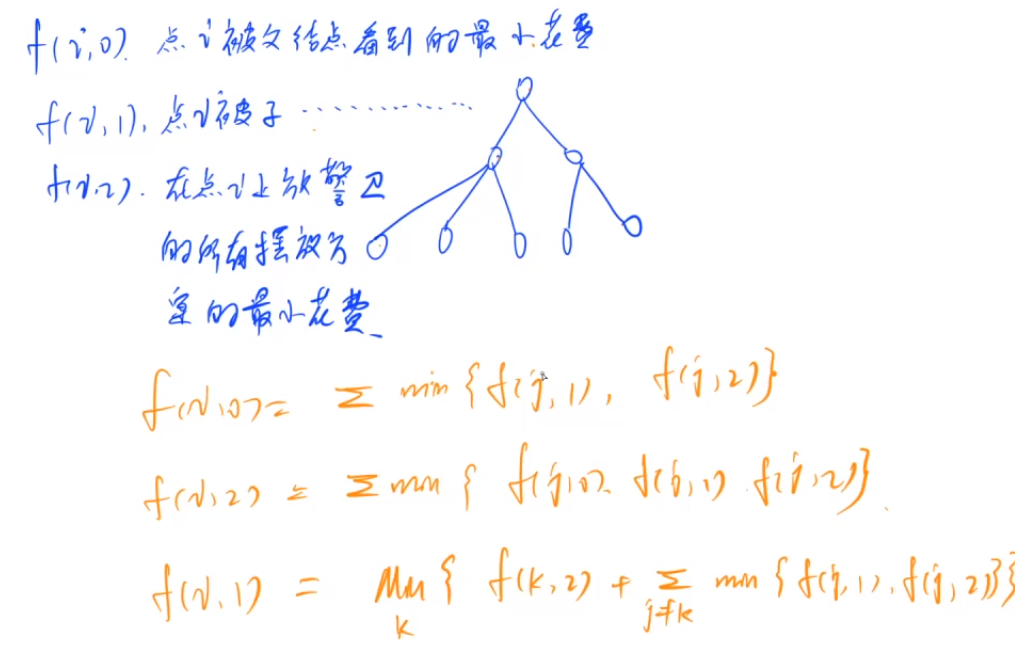 f(i,0). 点i被父结点看到的最小花费
f(i,1), 点i被子 ············
f(i,2). 在点i上放警卫
的所有摆放方
案的最小花费
f(i,0) = Σ min{f(j,1), f(j,2)}
f(i,2) = Σ min{ f(j,0), f(j,1) f(j,2)}.
f(i,1) = min{ f(k,2) + Σ min{f(j,1), f(j,2)}}
k j≠k